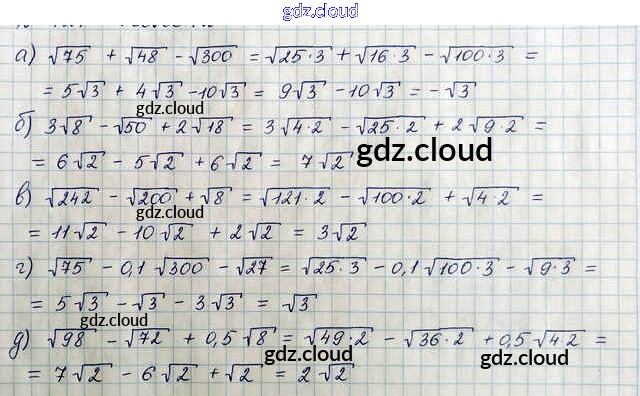 gdz.cloud
а) √75 + √48 - √300 = √25·3 + √16·3 - √100·3 =
= 5√3 + 4√3 - 10√3 = 9√3 - 10√3 = -√3
gdz.cloud
б) 3√8 - √50 + 2√18 = 3√4·2 - √25·2 + 2√9·2 =
= 6√2 - 5√2 + 6√2 = 7√2
gdz.cloud
gdz.cloud
в) √242 - √200 + √8 = √121·2 - √100·2 + √4·2 =
gdz.cloud
= 11√2 - 10√2 + 2√2 = 3√2
г) √75 - 0,1√300 - √27 = √25·3 - 0,1√100·3 - √9·3 =
= 5√3 - √3 - 3√3 = √3
gdz.cloud
д) √98 - √72 + 0,5√8 = √49·2 - √36·2 + 0,5√4·2 =
gdz.cloud
gdz.cloud
= 7√2 - 6√2 + √2 = 2√2
gdz.cloud